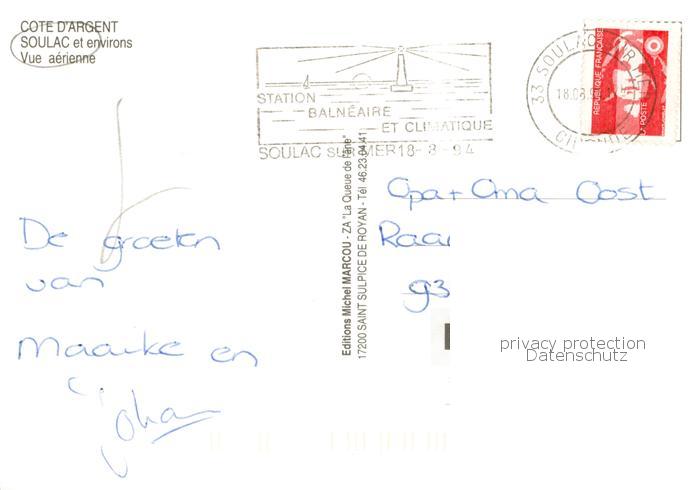 COTE D'ARGENT
SOULAC et environs
Vue aérienne
STATION
BALNÉAIRE
ET CLIMATIQUE
SOULAC SUR MER 18-8-94
33 SOULAC SUR MER
18.08
GIRONDE
REPUBLIQUE FRANÇAISE
LA POSTE
Editions Michel MARCOU - ZA "La Queue de l'Ane"
17200 SAINT SULPICE DE ROYAN - Tél 46.23.04.41
De groeten
van
Maaike en
Johan
Opa + Oma Oost
Raar
93
privacy protection
Datenschutz